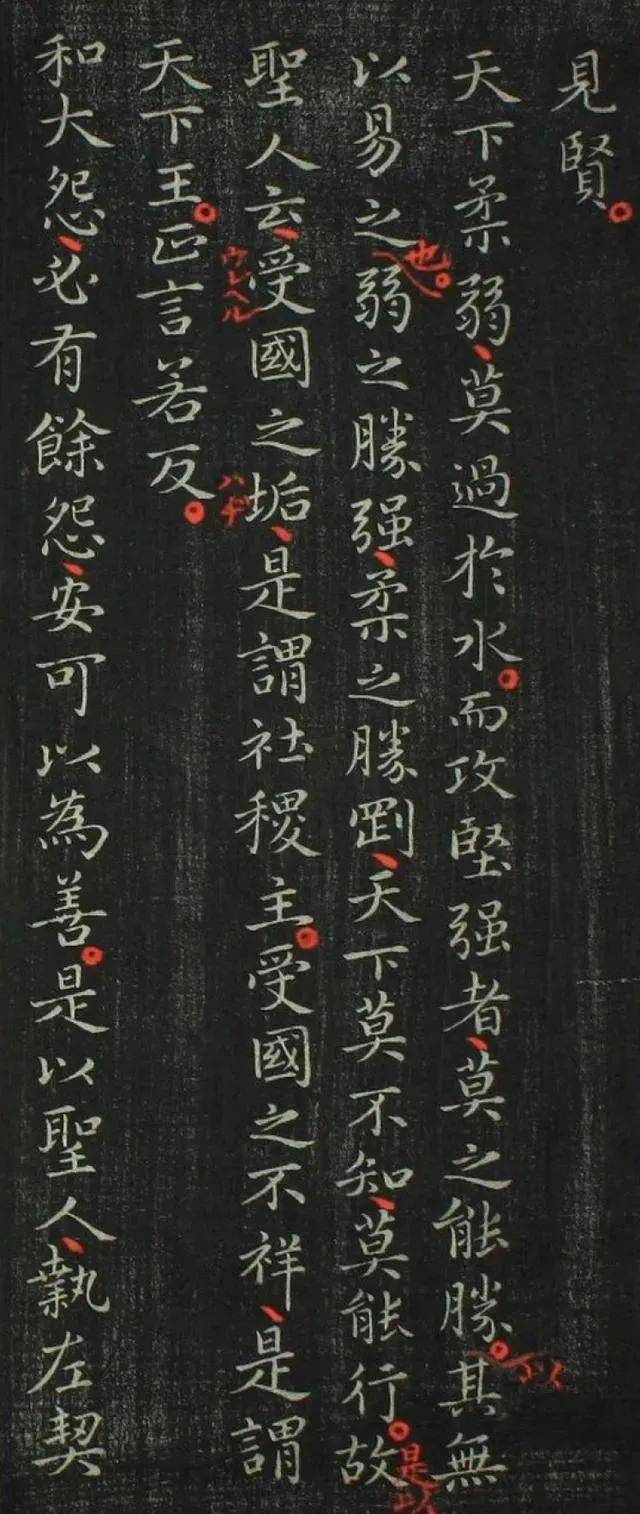 見賢。
天下柔弱、莫過於水。而攻堅强者、莫之能勝。其無
以易之弱之勝强、柔之勝剛、天下莫不知、莫能行。故
聖人云、受國之垢、是謂社稷主。受國之不祥、是謂
天下王。正言若反。
和大怨、必有餘怨、安可以為善。是以聖人、執左契
也。
是以
ウレヘル
ハヂ